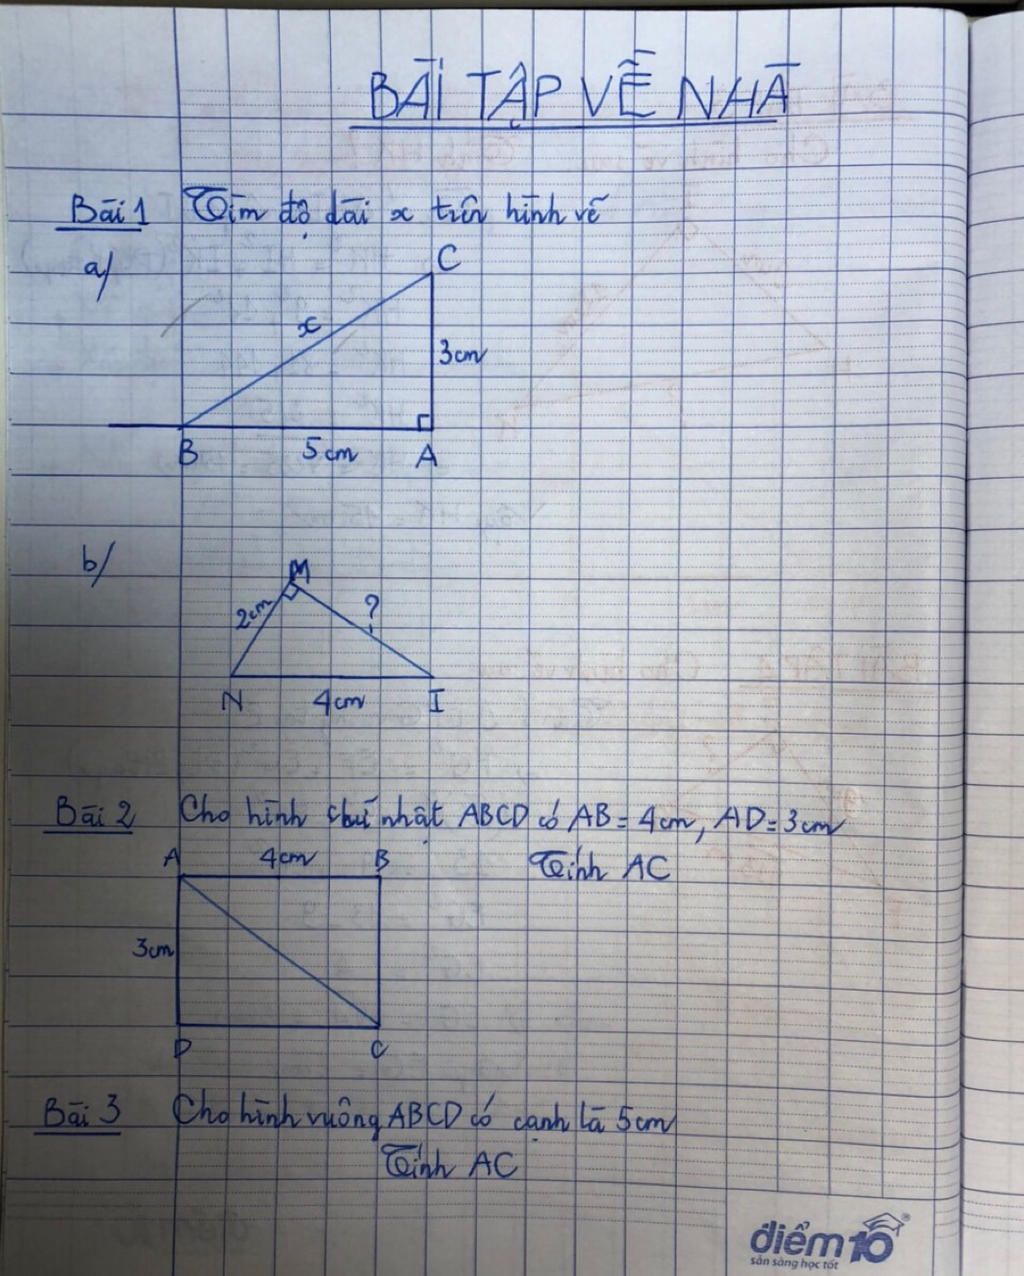 BÀI TẬP VỀ NHÀ
Bài 1 Tìm độ dài x trên hình vẽ
a/
C
x
3cm
B 5cm A
b/
M
2cm ?
N 4cm I
Bài 2 Cho hình chữ nhật ABCD có AB = 4cm, AD = 3cm
A 4cm B Tính AC
3cm
D C
Bài 3 Cho hình vuông ABCD có cạnh là 5cm
Tính AC
điểm10
sẵn sàng học tốt